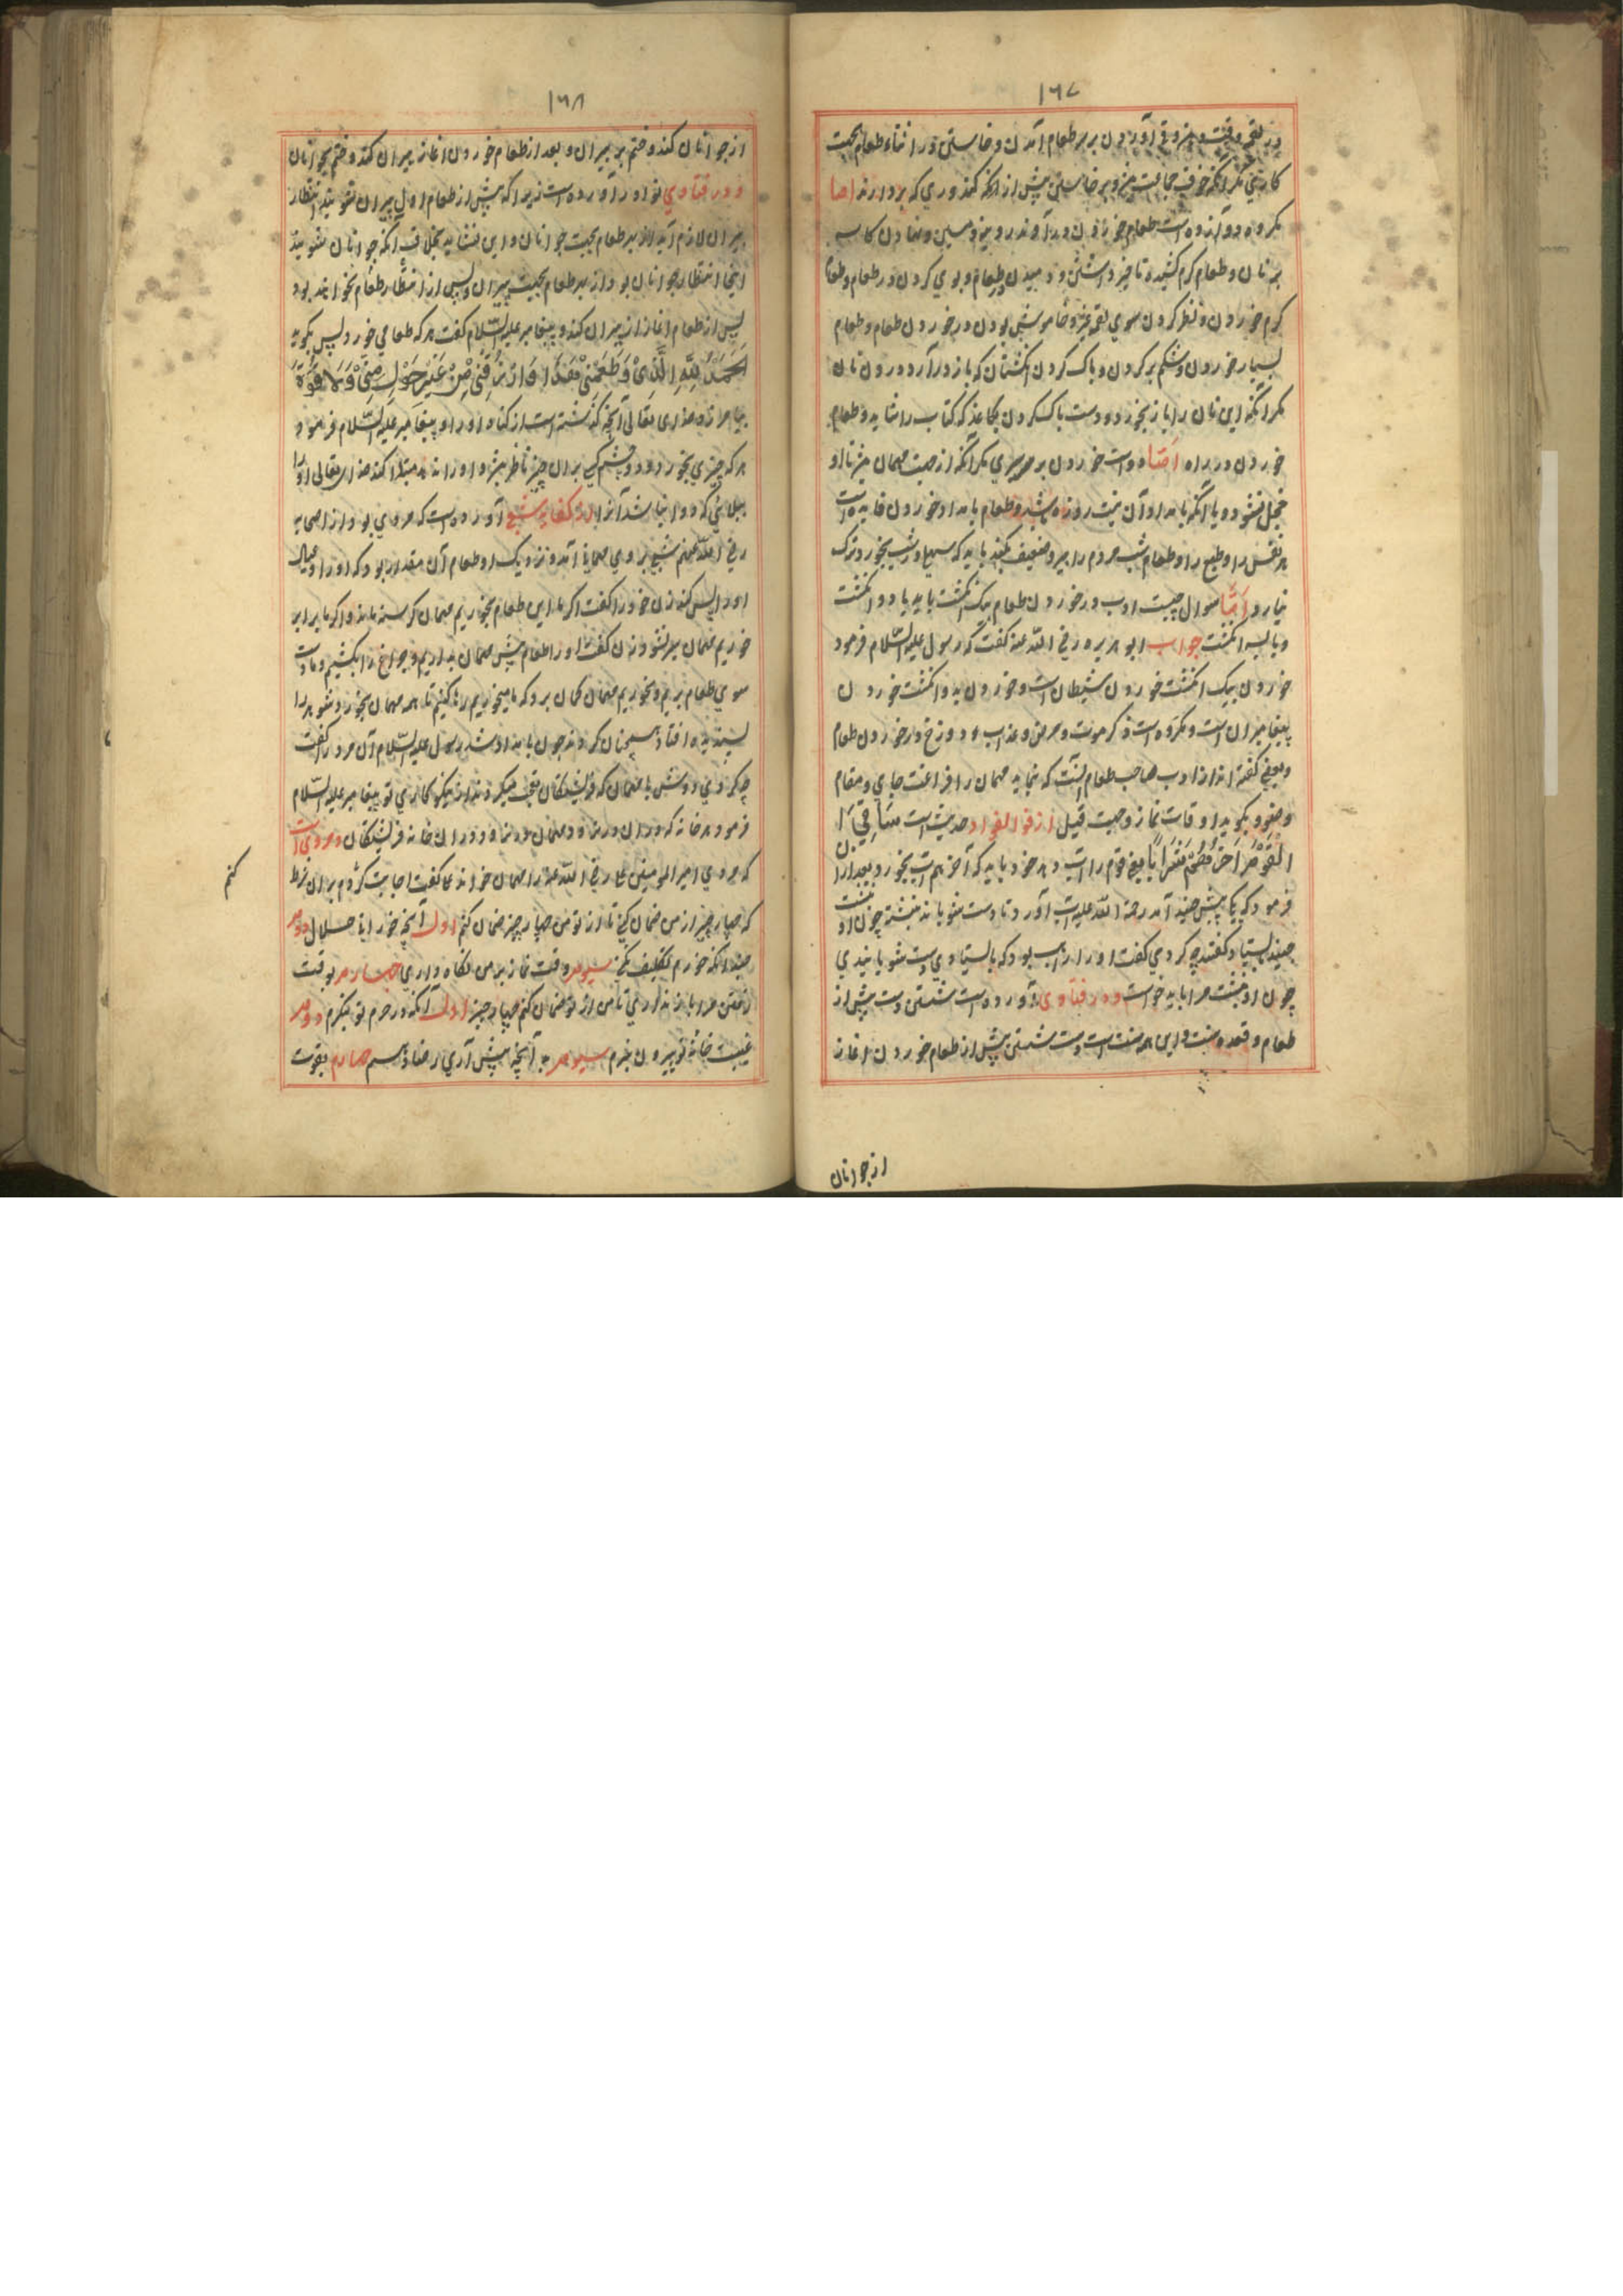 ١٦٧
کارنی مگر آنکه خوف جماعت و برخاستن پیش از آنکه کندوری که بردارند اما
مکروه دوازده است طعام خوردن در آوند رویین و مسین و نهادن کاسه
بر نان و طعام کرم کشیده تا خیر داشتن و دمیدن در طعام و بوی کردن در طعام و طعام
کرم خوردن و نظر کردن سوی لقمه غیر و خاموش بودن در خوردن طعام و طعام
بسیار خوردن و شکم پر کردن و پاک کردن انکشتان که باز در آرد درون نان
مکر آنکه این نان را باز بخورد و دست پاک کردن بکاغذ که کتاب را شاید و طعام
خوردن در راه اما رواست خوردن بر سیری مکر آنکه از جهت مهمان میزبان او
خجل نشود و یا آنکه بامداد آن نیت روزه باشد و طعام بامداد خوردن فایده است
هر نفس را و طبع را و طعام شب مردم را پیر و ضعیف کند باید که سهل در شب بخورد و ترک
نیارد اما سوال چیست ادب در خوردن طعام بیک انکشت باید یا دو انکشت
و یا سه انکشت جواب ابو هریره رضی الله عنه کفت که رسول علیه السلام فرمود
خوردن بیک انکشت خوردن شیطان است و خوردن بدو انکشت خوردن
پیغامبران است و مکروه است ذکر موت و مرض و عذاب و دوزخ در خوردن طعام
و بعضی کفته اند از ادب صاحب طعام آنست که نماید مهمان را فراغت جای و مقام
وضو و بکوید اوقات نماز و جهت قبله از فوائد الفواد حدیث است ساقی
القوم آخرهم شربا یعنی قوم را آب دهد خود باید که آخر همه آب بخورد و بعد از آن
فرمود که یکی پیش جنید آمد رحمة الله علیه آب آورد تا دست شویاند بنشست چون او بنشست
جنید بایستاد کفتند چه کردی کفت او را واجب بود که بایستادی دست شویانیدی
چون او بنشست مرا باید خواست و در فتاوی آورده است شستن دست پیش از
طعام و بعده سنت و این همه سنت است دست شستن پیش از طعام خوردن اغاز
از جوانان
١٦٨
از جوانان کند و ختم بر پیران و بعد از طعام خوردن اغاز پیران کند و ختم بجوانان
و در فتاوی نوادر آورده است زیرا که پیش از طعام اول پیران شویند انتظار
پیران لازم آید از بهر طعام بجهت جوانان و این نشاید بخلاف آنکه جوانان شویند
اینجا انتظار جوانان بود از بهر طعام بجهت پیران و پس از انتظار طعام نخواهد بود
پس از طعام اغاز از پیران کند و پیغامبر علیه السلام کفت هر که طعامی خورد پس بکوید
الحمد لله الذی اطعمنی هذا و ارزقنی من غیر حول منی ولا قوة
بیامرزد خدای تعالی آنچه کذشته است از کناه او را و پیغامبر علیه السلام فرمود
هر که چیزی بخورد و دو چشم کسی بدان چیز ناظر باشد و او را ندهد مبتلا کند خدای تعالی او را
ببلائی که دوا نباشد آنرا در کفایه شعبی آورده است که مردی بود از صحابه
رضی الله عنهم شبی بروی مهمانی آمد و نزدیک او طعام آن مقدار بود که او را و عیال
او را بس کند زن خود را کفت اکر ما این طعام بخوریم مهمان کرسنه ماند و اکر ما برابر
خوریم مهمان سیر نشود زن کفت او را طعام پیش مهمان بداریم و چراغ را بکشیم و ما دست
سوی طعام بریم و نخوریم مهمان کمان برد که ما میخوریم رها کنیم تا همه مهمان بخورد
پسندیده افتاد همچنان کردند چون بامداد شد رسول علیه السلام آن مرد را کفت
چه کردی دوش با مهمان که فرشتکان تعجب میکردند از نیکوکاری تو پیغامبر علیه السلام
فرمود هر خانه که در ان درنیاید مهمان درنیاید در ان خانه فرشتکان و مروی است
که مردی امیر المومنین علی رضی الله عنه را مهمان خواند علی کفت اجابت کردم بدان شرط
که چهار چیز از من ضمان کنی تا از تو من چهار چیز ضمان کنم اول آنچه خورانی حلال دوم
چندانکه خورم تکلیف نکنی سیوم وقت نماز بر من نکاه داری چهارم بوقت
رفتن مرا باز نداری تا من از تو ضمان کنم چهار چیز اول آنکه در حرم تو ننکرم دوم
غیبت خانه تو بیرون نبرم سیوم به آنچه پیش آری رضا دهم چهارم بقوت
کنم